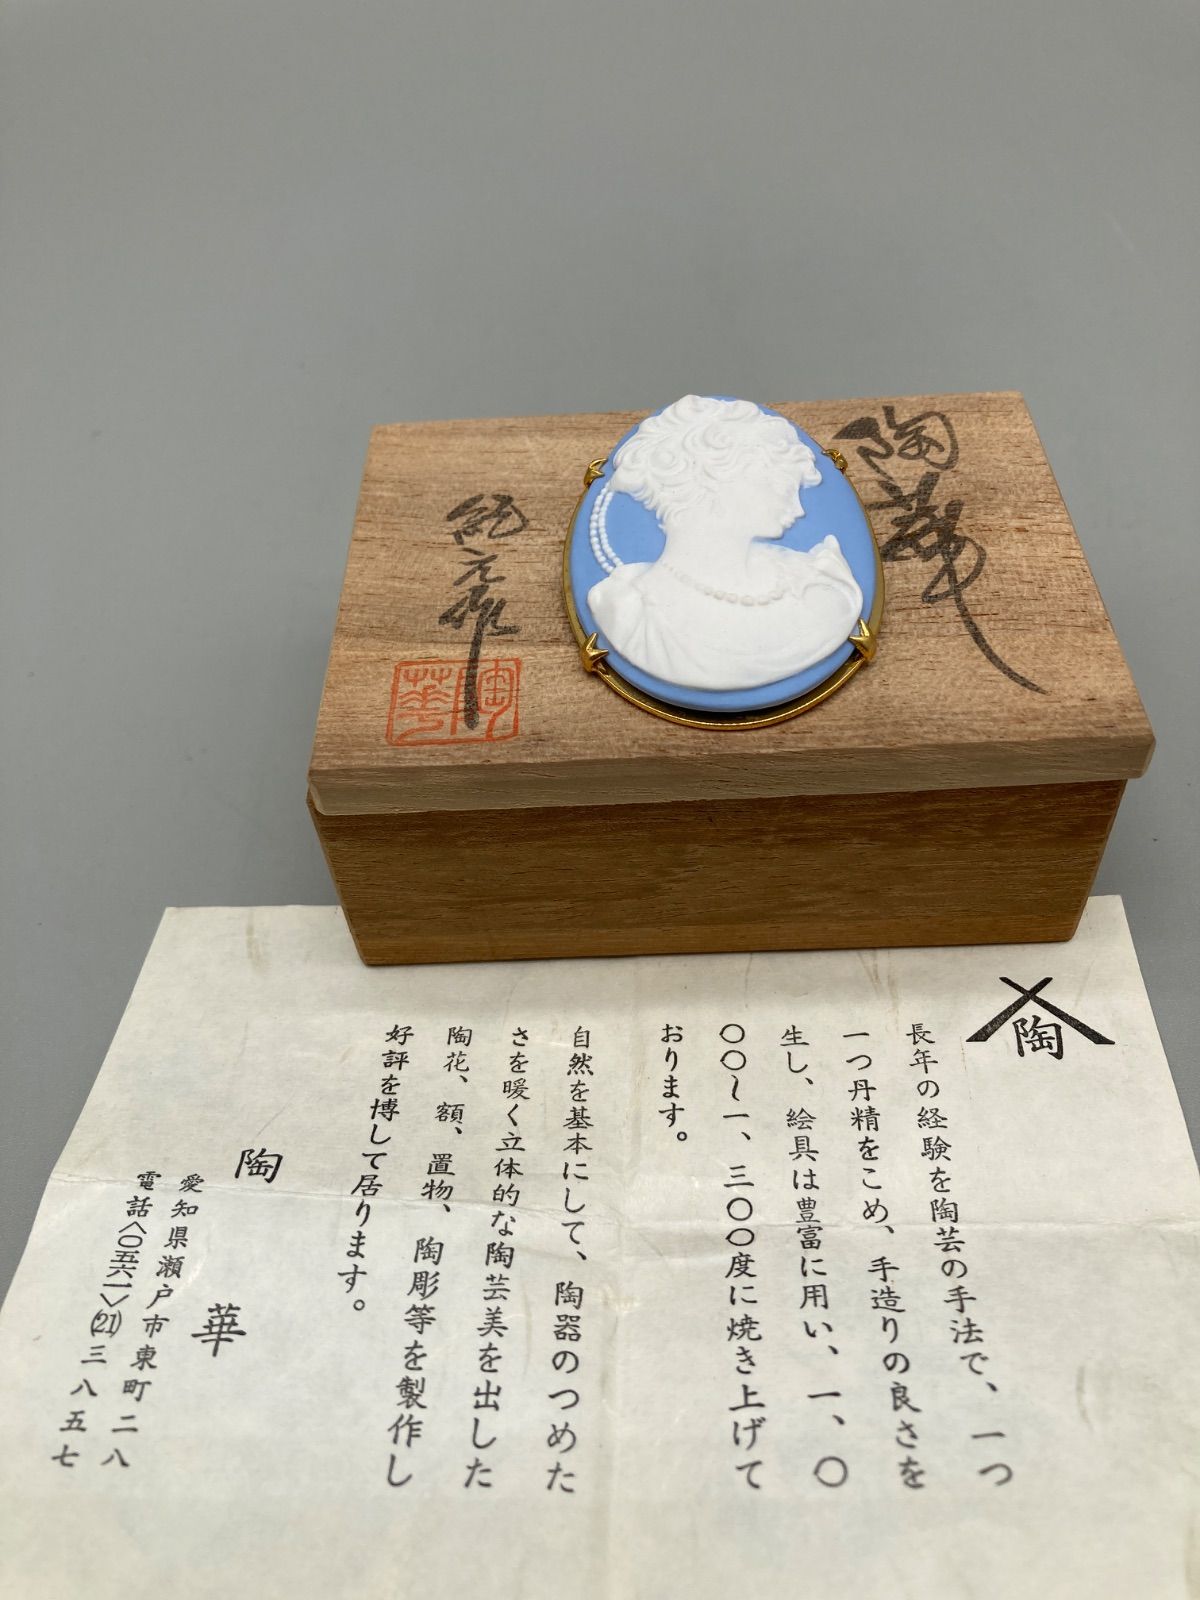 陶華
作
陶華
陶
長年の経験を陶芸の手法で、一つ
一つ丹精をこめ、手造りの良さを
生し、絵具は豊富に用い、一、〇
〇〇〜一、三〇〇度に焼き上げて
おります。
自然を基本にして、陶器のつめた
さを暖く立体的な陶芸美を出した
陶花、額、置物、陶彫等を製作し
好評を博して居ります。
陶華
愛知県瀬戸市東町二八
電話〈〇五六一〉(21)三八五七